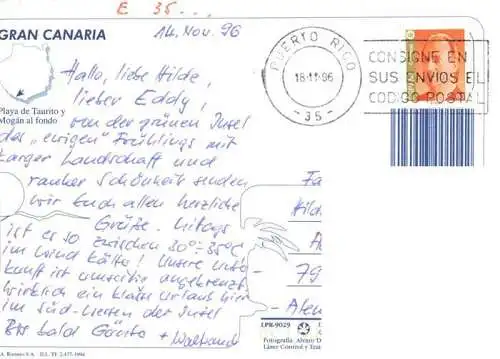 E 35...
GRAN CANARIA
14. Nov. 96
PUERTO RICO
18-11-96
-35-
CONSIGNE EN
SUS ENVIOS EL
CODIGO POSTAL
Playa de Taurito y
Mogán al fondo
Hallo, liebe Hilde,
lieber Eddy,
von der grünen Insel
des "ewigen" Frühlings mit
karger Landschaft und
rauher Schönheit senden
wir Euch allen herzliche
Grüße. Mitags
ist es so zwischen 30°-35°C
im Wind kälter! Unsere Unter-
kunft ist
wirklich ein Urlaub hier
im Süd-Westen der Insel
Bis bald Günter + Waltraud
Fa
Hild
79
Alen
LPR-9029
Fotografía
Láser Control y
A. Romero S.A.